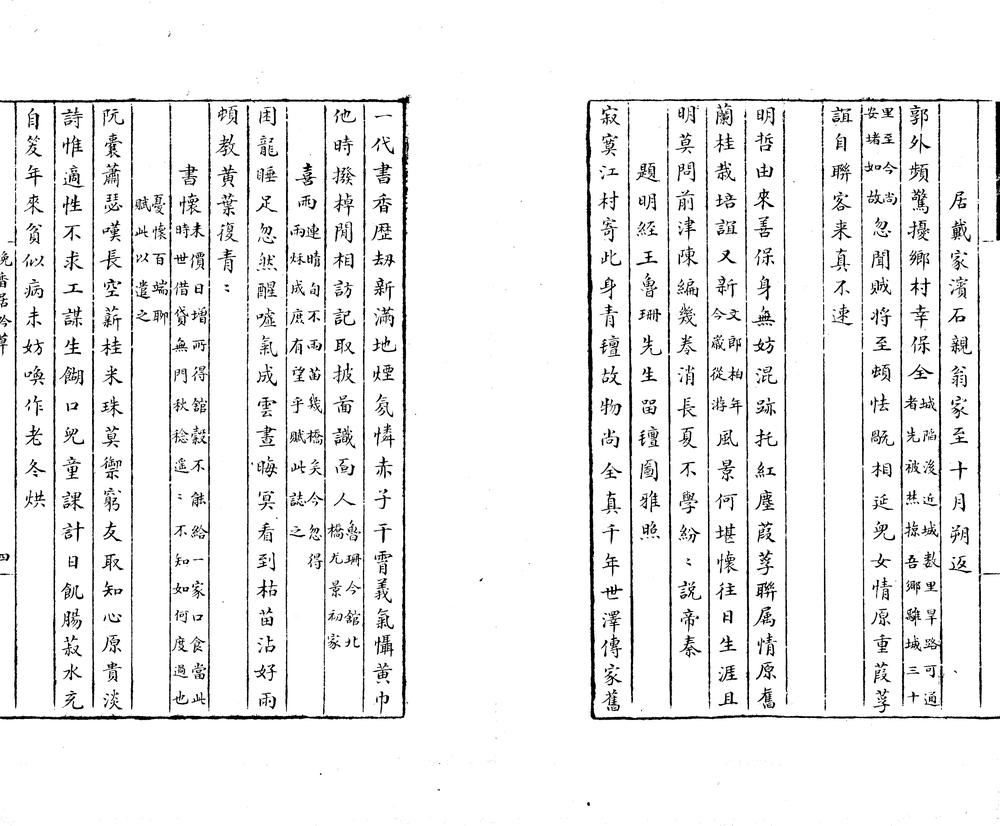 居戴家濱石親翁家至十月朔返
郭外頻驚擾鄉村幸保全城陷後近城數里旱路可通者先被焚掠吾鄉離城三十
里至今尚安堵如故忽聞賊將至頓怯既相延兒女情原重葭莩
誼自聯客来真不速
明哲由来善保身無妨混跡托紅塵葭莩聯属情原舊
蘭桂栽培誼又新文郎柏年今嵗從游風景何堪懷往日生涯且
明莫問前津陳編幾巻消長夏不學紛〻説帝秦
題明經王魯珊先生留氊圖雅照
寂寞江村寄此身青氊故物尚全真千年世澤傳家舊
一代書香歴刼新滿地煙氛憐赤子干霄義氣懾黄巾
他時撥掉閒相訪記取披啚識面人魯珊今館北橋尤景初家
喜雨連晴旬不雨苗幾橋矣今忽得雨穌成庶有望乎賦此誌之
困龍睡足忽然醒噓氣成雲晝晦冥看到枯苗沾好雨
頓教黄葉復青〻
書懷来價日增所得館穀不能給一家口食當此時世借貸無門秋稔遥〻不知如何度過也
憂懷百端聊賦此以遣之
阮囊蕭瑟嘆長空薪桂米珠莫禦窮友取知心原貴淡
詩惟適性不求工謀生餬口兒童課計日飢腸菽水充
自笑年來貧似病未妨喚作老冬烘
晚香居吟草
四